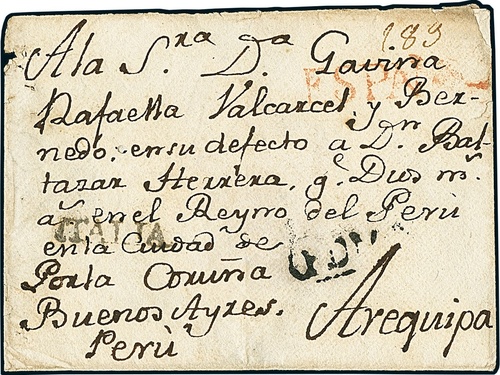 183
A la S.ra D.a Gavina
ESPA
Rafaella Valcarcel, y Ber-
nedo, en su defecto a D.n Bal-
tazar Herrera, g.e Dios m.s
a.s en el Reyno del Perù
ITALIA
en la Ciudad de
Por la Coruña
Buenos Ayres.
Perù
Arequipa